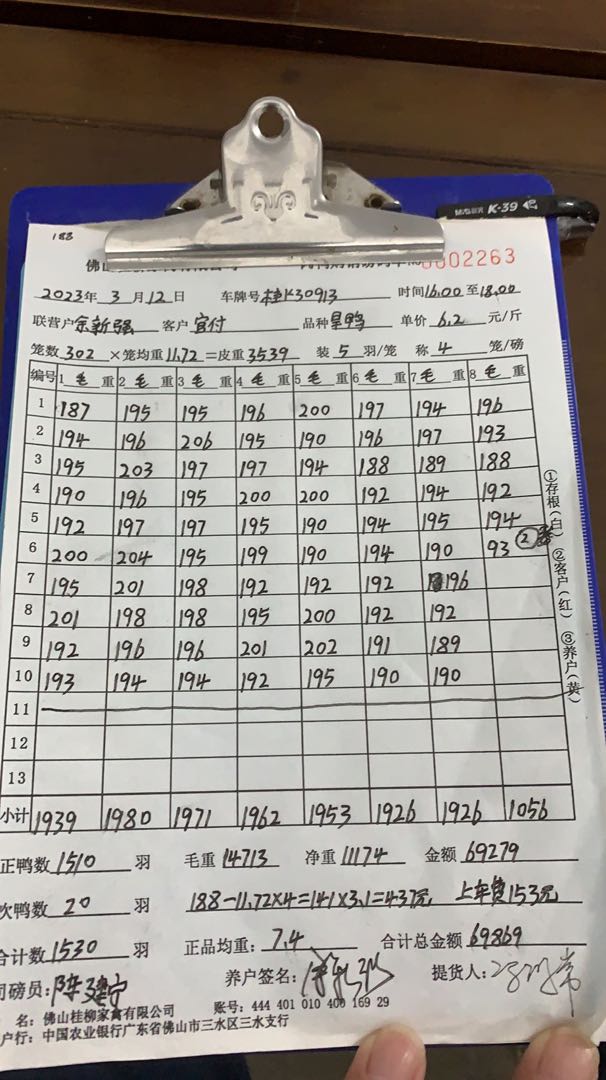 188
M&G 晨光 K-39
0002263
2023年 3 月 12 日 车牌号 桂K30913 时间16.00至18.00
联营户 余新强 客户 宜付 品种 旱鸭 单价 6.2 元/斤
笼数 302 ×笼均重11.72=皮重3539 装 5 羽/笼 称 4 笼/磅
编号 1 毛 重 2 毛 重 3 毛 重 4 毛 重 5 毛 重 6 毛 重 7 毛 重 8 毛 重
1 187 195 195 196 200 197 194 196
2 194 196 206 195 190 196 197 193
3 195 203 197 197 194 188 189 188
4 190 196 195 200 200 192 194 192
5 192 197 197 195 190 194 195 194
6 200 204 195 199 190 194 190 93 ②
7 195 201 198 192 192 192 196
8 201 198 198 195 200 192 192
9 192 196 196 201 202 191 189
10 193 194 194 192 195 190 190
11
12
13
小计 1939 1980 1971 1962 1953 1926 1926 1056
①存根(白) ②客户(红) ③养户(黄)
正鸭数 1510 羽 毛重 14713 净重 11174 金额 69279
次鸭数 20 羽 188-11.72×4=141×3.1=437元 上车费153元
合计数 1530 羽 正品均重: 7.4 合计总金额 69869
司磅员: 陈建宁 养户签名: 提货人:
名: 佛山桂柳家禽有限公司 账号: 444 401 010 400 169 29
户行: 中国农业银行广东省佛山市三水区三水支行